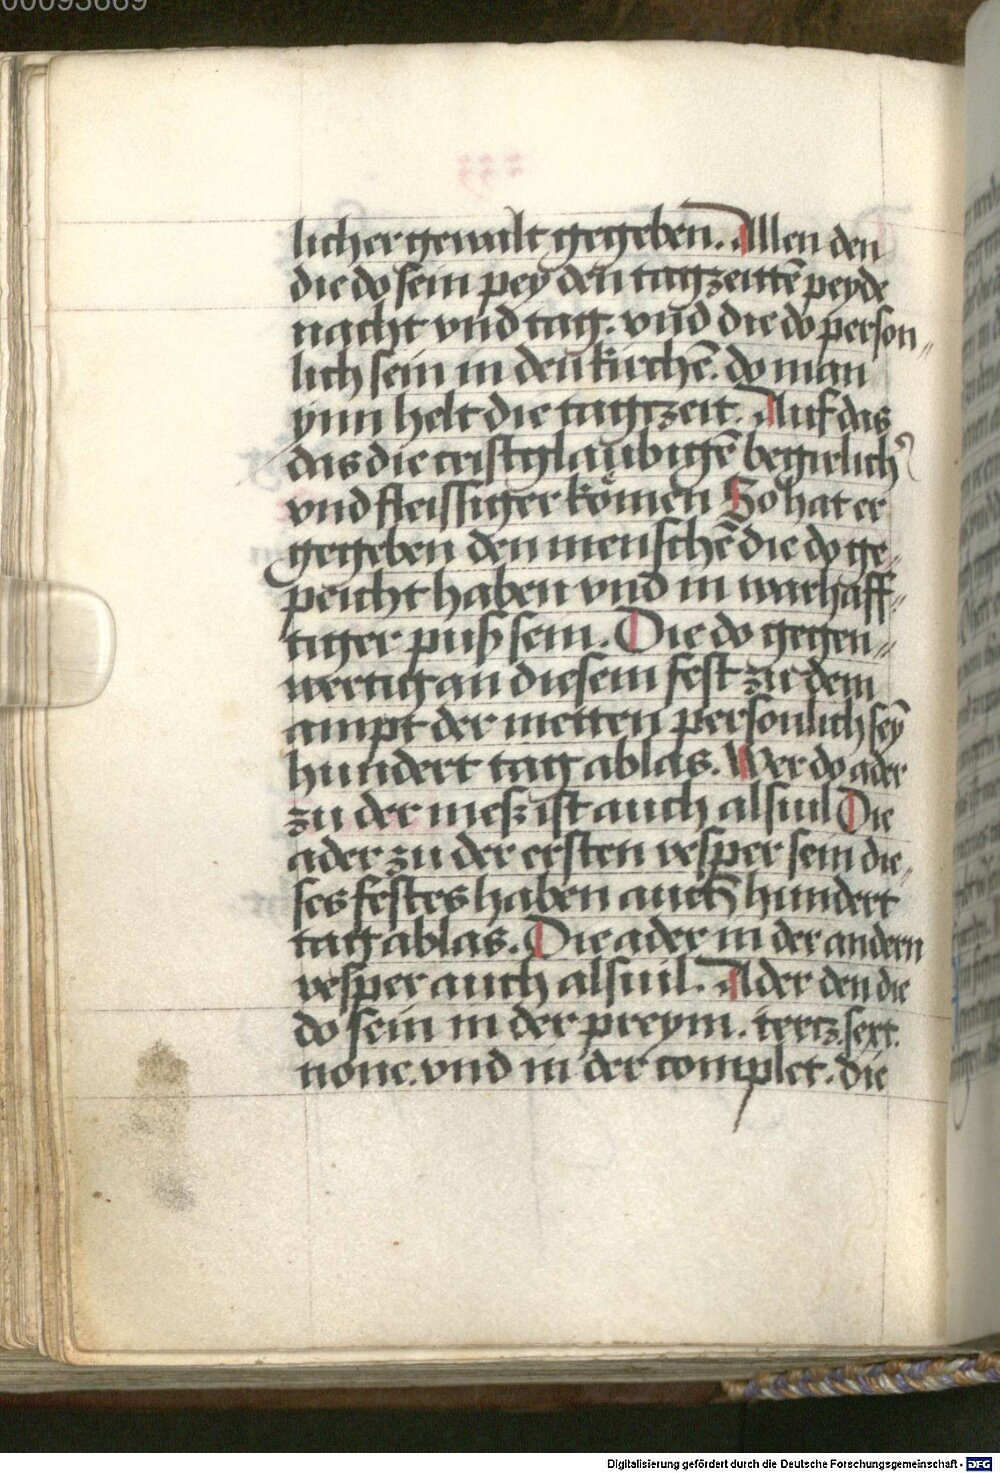 00093669
licher gewalt gegeben. Allen den
die do sein pey den tagzeittē peyde
nacht vnd tag. vnd die do person„
lich sein in den kirchē. do man
ynn helt die tagtzeit. Auf das
das die cristglaubigē begirlich᷑
vnd fleissiger komen So hat er
gegeben den menschē die do ge„
peicht haben vnd in warhaff„
tiger puß sein. Die do gegen„
wertig an diesem fest zu dem
ampt der metten personlich sey̅
hundert tag ablas. Wer do ader
zu der meß ist auch alsuil Die
ader zu der ersten vesper sein die„
ses festes haben auch hundert
tag ablas. Die ader in der andern
vesper auch alsuil. Ader den die
do sein in der preym. tertz. sext.
none. vnd in der complet. die
Digitalisierung gefördert durch die Deutsche Forschungsgemeinschaft - DFG